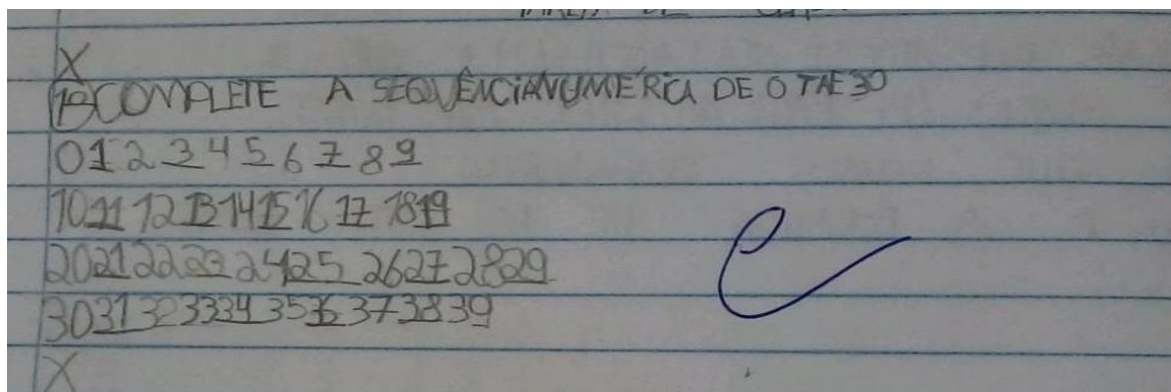 X
1º COMPLETE A SEQUÊNCIA NUMÉRICA DE 0 TAE 30
0 1 2 3 4 5 6 7 8 9
10 11 12 13 14 15 16 17 18 19
20 21 22 23 24 25 26 27 28 29
30 31 32 33 34 35 36 37 38 39
X